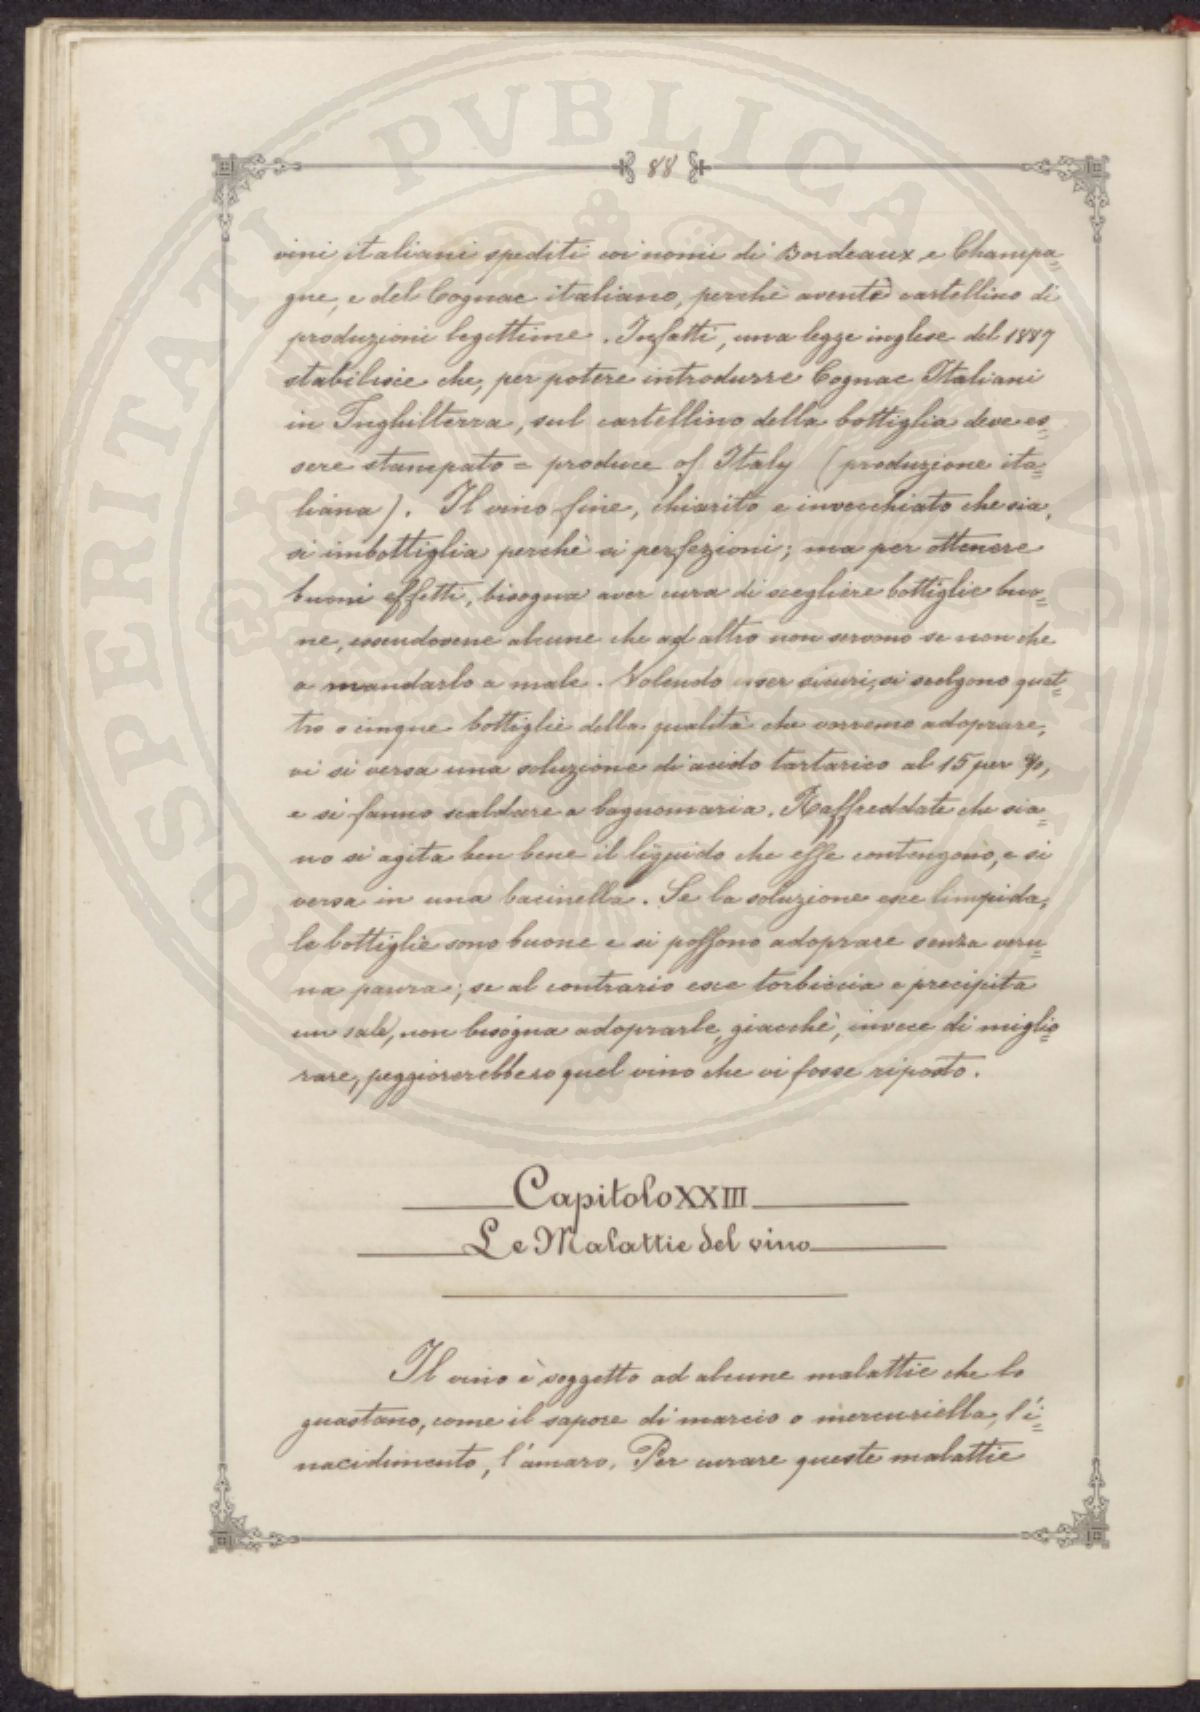 88
vini italiani spediti coi nomi di Bordeaux e Champa=
gne, e del Cognac italiano, perchè aventi cartellino di
produzioni legittime. Infatti, una legge inglese del 1887
stabilisce che, per potere introdurre Cognac Italiani
in Inghilterra, sul cartellino della bottiglia deve es=
sere stampato = produce of Italy (produzione ita=
liana). Il vino fine, chiarito e invecchiato che sia,
si imbottiglia perchè si perfezioni; ma per ottenere
buoni effetti, bisogna aver cura di scegliere bottiglie buo=
ne, essendovene alcune che ad altro non servono se non che
a mandarlo a male. Volendo esser sicuri, si scelgono quat=
tro o cinque bottiglie della qualità che vorremo adoprare,
vi si versa una soluzione di acido tartarico al 15 per %,
e si fanno scaldare a bagnomaria. Raffreddate che sia=
no si agita ben bene il liquido che esse contengono, e si
versa in una bacinella. Se la soluzione esce limpida,
le bottiglie sono buone e si possono adoprare senza veru=
na paura; se al contrario esce torbiccia e precipita
un sale, non bisogna adoprarle, giacchè, invece di miglio=
rare, peggiorerebbero quel vino che vi fosse riposto.
Capitolo XXIII
Le Malattie del vino
Il vino è soggetto ad alcune malattie che lo
guastano, come il sapore di marcio o mercuriella, l'i=
nacidimento, l'amaro. Per curare queste malattie
PROSPERITATI PVBLICAE AVGENDAE